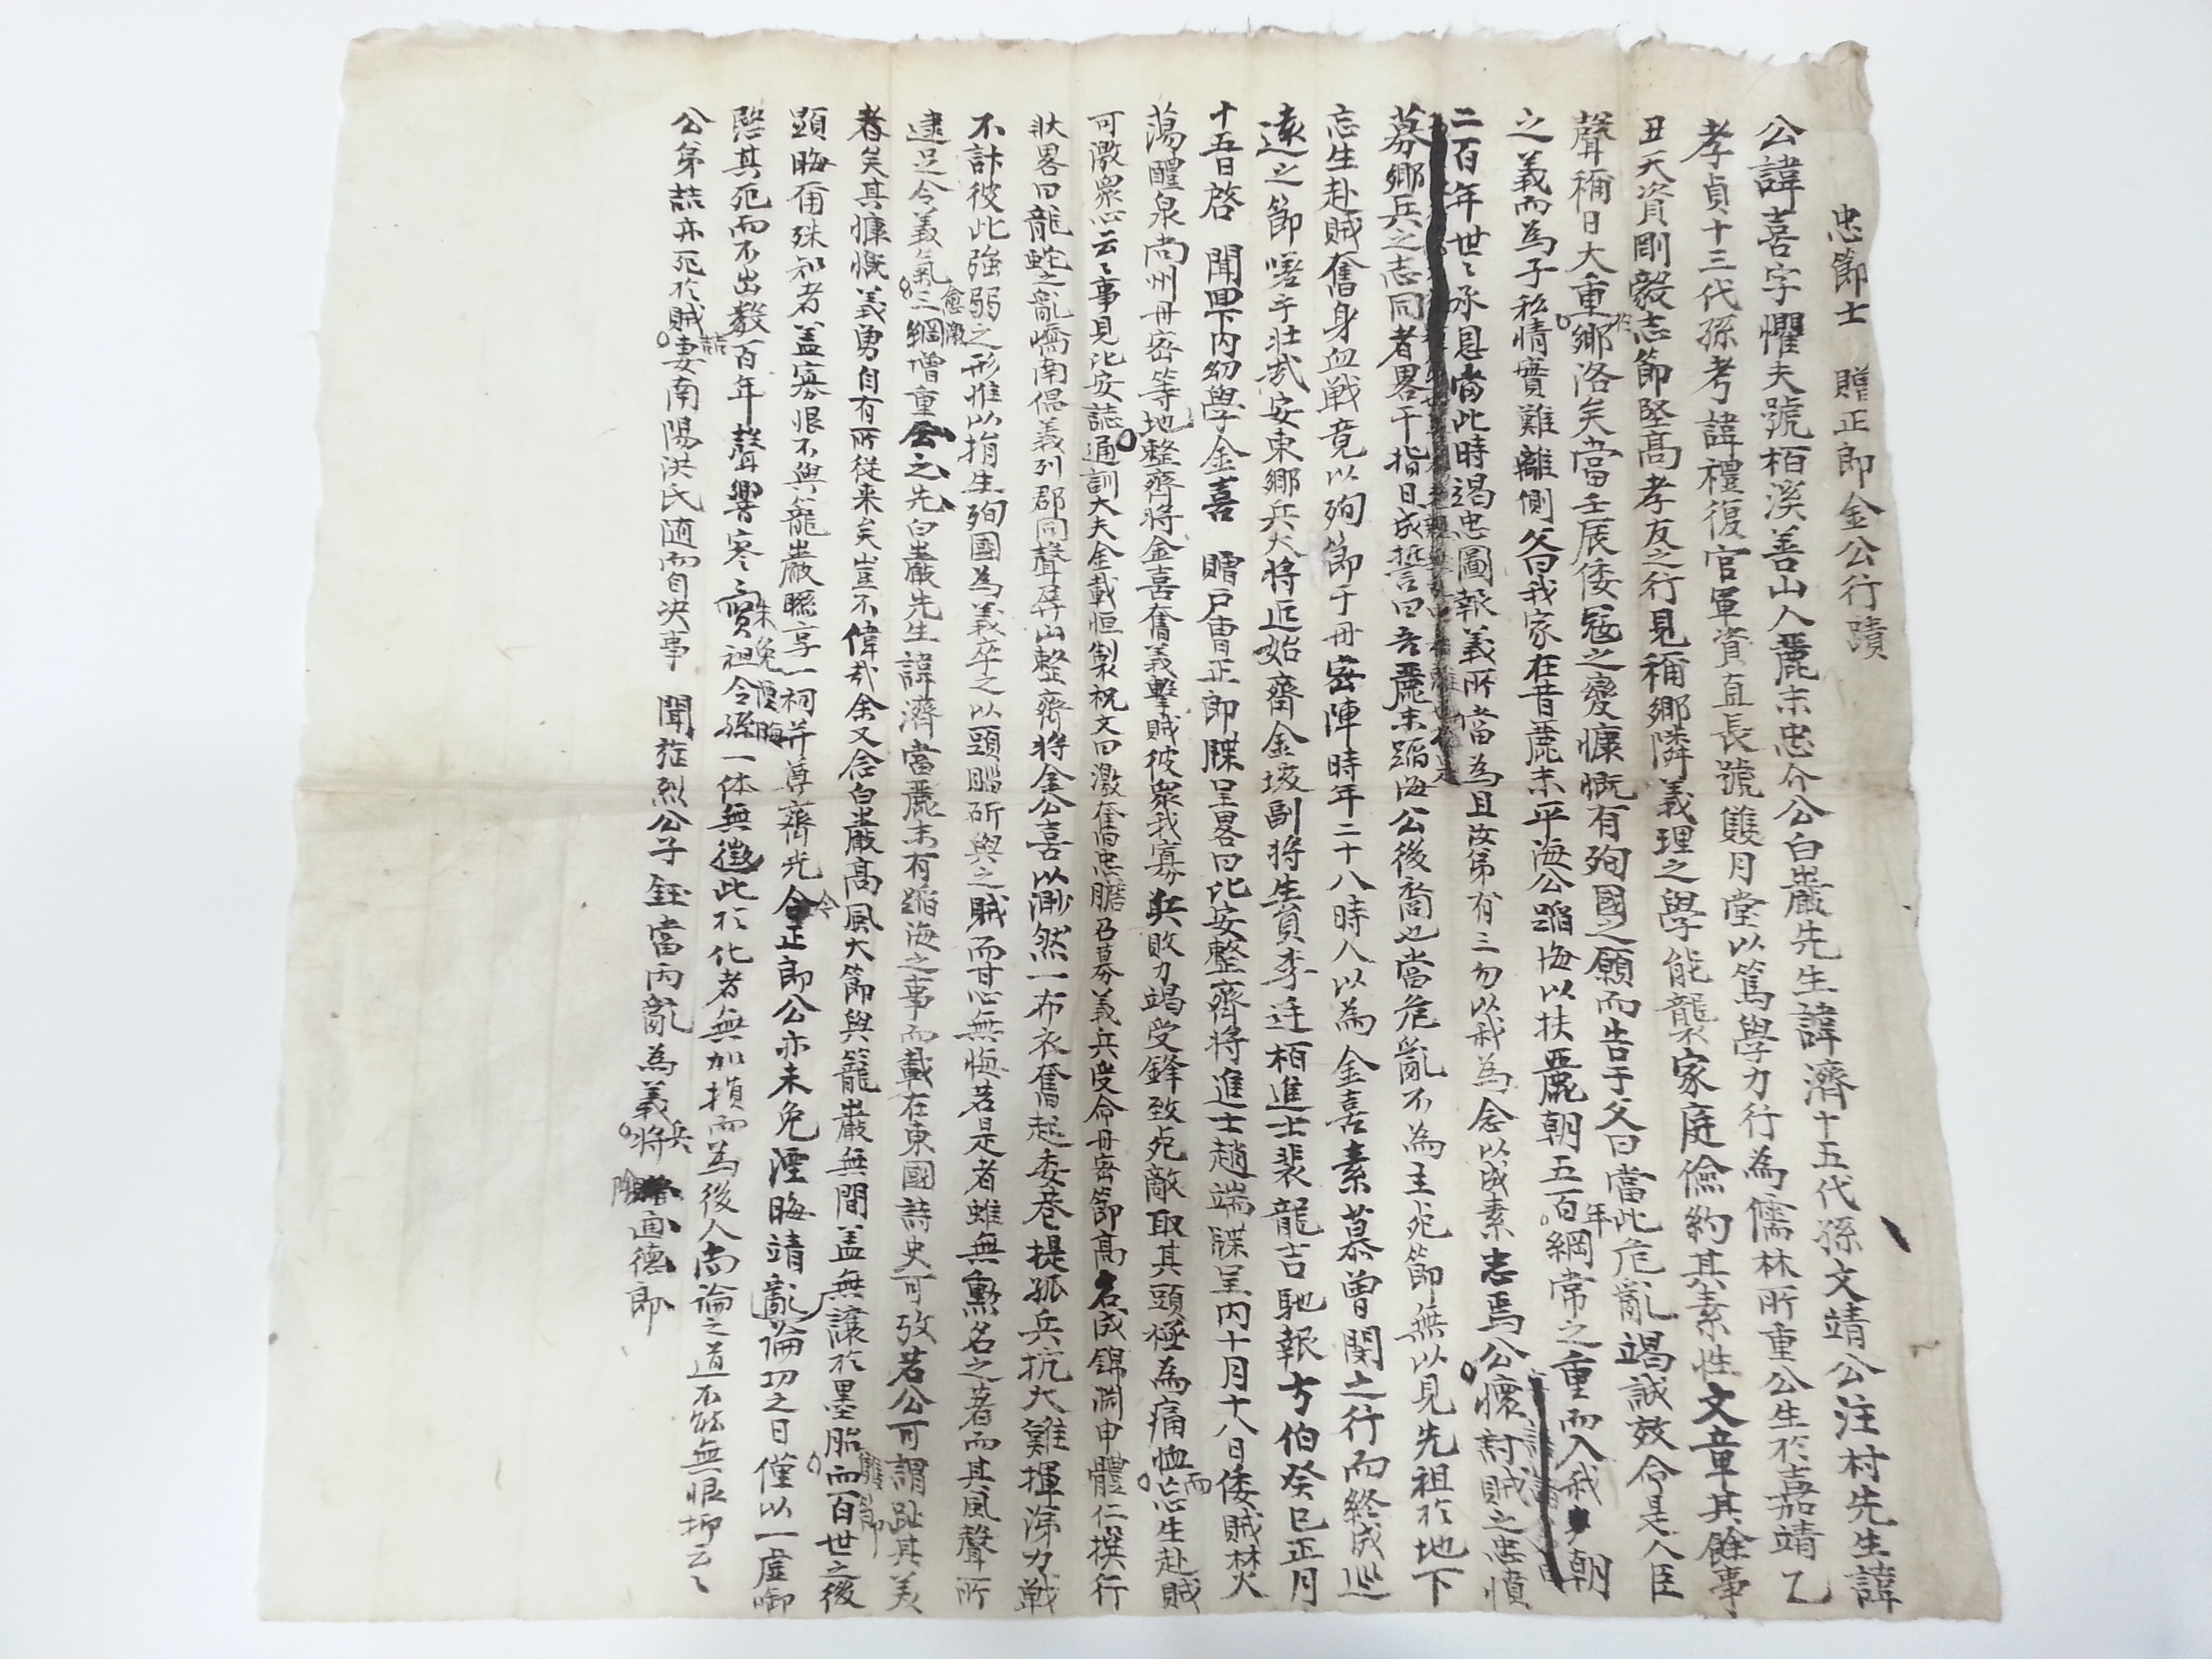 忠節士 贈正郎金公行蹟
公諱喜字懼夫號栢溪善山人麗末忠介公白巖先生諱濟十五代孫文靖公注村先生諱
孝貞十三代孫考諱禮復官軍資直長號雙月堂以篤學力行為儒林所重公生於嘉靖乙
丑天資剛毅志節堅高孝友之行見稱鄕隣義理之學能襲家庭儉約其素性文章其餘事
聲稱日大重於鄕洛矣當壬辰倭寇之變慷慨有殉國之願而告于父曰當此危亂竭誠效命是人臣
之義而為子私情實難離側父曰我家在昔麗末平海公蹈海以扶麗朝五百年綱常之重而入我朝
二百年世〻承恩當此時竭忠圖報義所當為且汝弟有三勿以我為念以成素志焉公懷討賊之忠憤
募鄕兵之志同者畧干指日成誓曰吾麗末蹈海公後裔也當危亂不為主死節無以見先祖於地下
忘生赴賊奮身血戰竟以殉節于丹密陣時年二十八時人以為金喜素慕曾閔之行而終成巡
遠之節嗟乎壯哉安東鄕兵大將近始齋金垓副將生員李廷栢進士裴龍吉馳報方伯癸巳正月
十五日啓 聞回下內幼學金喜 贈戶曹正郎牒呈畧曰比安整齊將進士趙端牒呈內十月十八日倭賊焚
蕩醴泉尙州丹密等地整齊將金喜奮義擊賊彼衆我寡兵敗力竭受鋒致死敵取其頭極為痛恤而忘生赴賊
可激衆心云〻事見比安誌通訓大夫金載恒製祝文曰激奮忠膽召募義兵受命丹密節高名成錦淵申體仁撰行
狀畧曰龍蛇之亂嶠南倡義列郡同聲尋山整齊將金公喜以渺然一布衣奮起委巷提孤兵抗大難揮涕力戰
不計彼此強弱之形惟以捐生殉國為義卒之以頭腦斫與之賊而甘心無悔若是者雖無勳名之著而其風聲所
逮足令義氣愈激三綱增重公之先白巖先生諱濟當麗末有蹈海之事而載在東國詩史可攷若公可謂趾其美
者矣其慷慨義勇自有所從來矣豈不偉哉余又念白巖高風大節與籠巖無間盖無讓於墨胎而百世之後
顯晦循殊知者盖寡恨不與籠巖聯享一祠幷尊齊光今正郎公亦未免湮晦靖亂論功之日僅以一虛啣
啓其死而不出數百年聲響寥〻實未免湮晦祖令孫一体無徵此於化者無加損而為後人尙論之道不能無恨抑云〻
公弟喆亦死於賊喆妻南陽洪氏適而自决事 聞旌烈公子鈺當丙亂為義兵將 通德郎